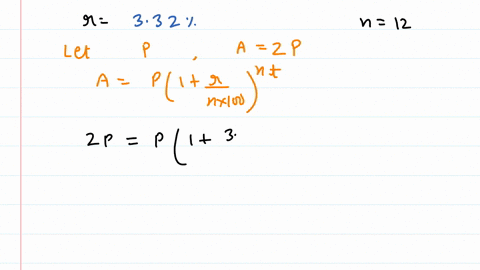 r = 3.32 % n = 12
Let P , A = 2P
A = P(1 + r/n×100)^nt
2P = P(1 + 3.